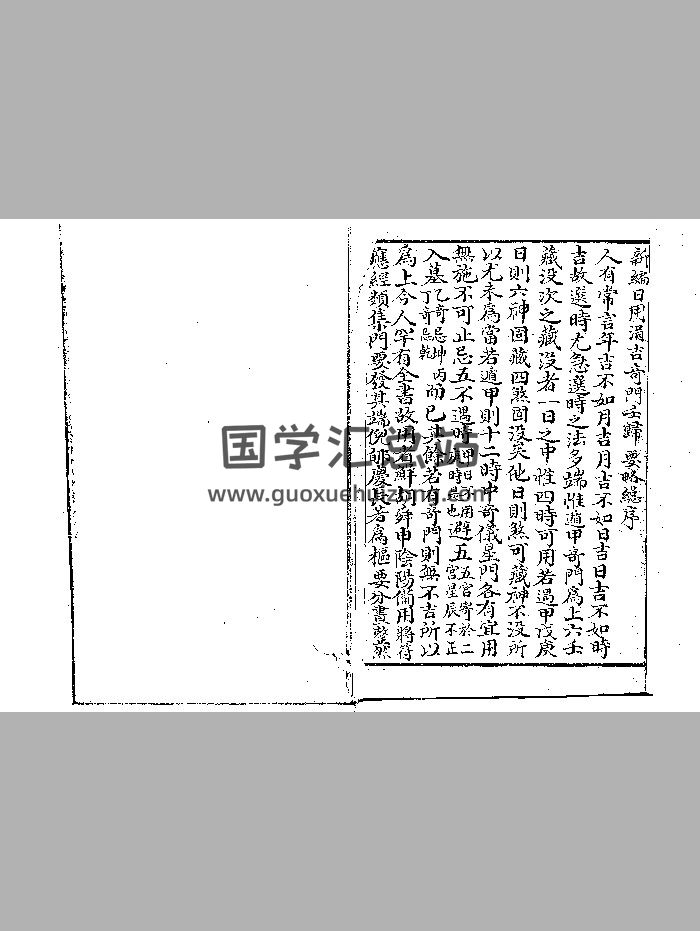 新編日用涓吉奇門五歸要略總序
人有常言年吉不如月吉月吉不如日吉日吉不如時
吉故選時尤急選時之法多端惟遁甲奇門為上六壬
藏没次之藏没者一日之中惟四時可用若遇甲戊庚
日則六神固藏四煞固没矣他日則煞可藏神不没所
以尤未為當若遁甲則十二時中奇儀星門各有宜用
無施不可止忌五不遇時甲日用避五五宫寄於二宫星辰不正
入墓乙奇忌坤丙丁奇忌乾而已其餘若有奇門則無不吉所以
為上今人罕有全書故用者鮮舜申陰陽備用將符
應經類集門要發其端倪郭慶長若為樞要分畫整
国学汇总站
www.guoxuehuizong.com